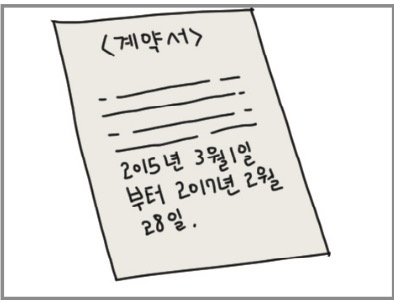 <계약서>
2015년 3월1일
부터 2017년 2월
28일.